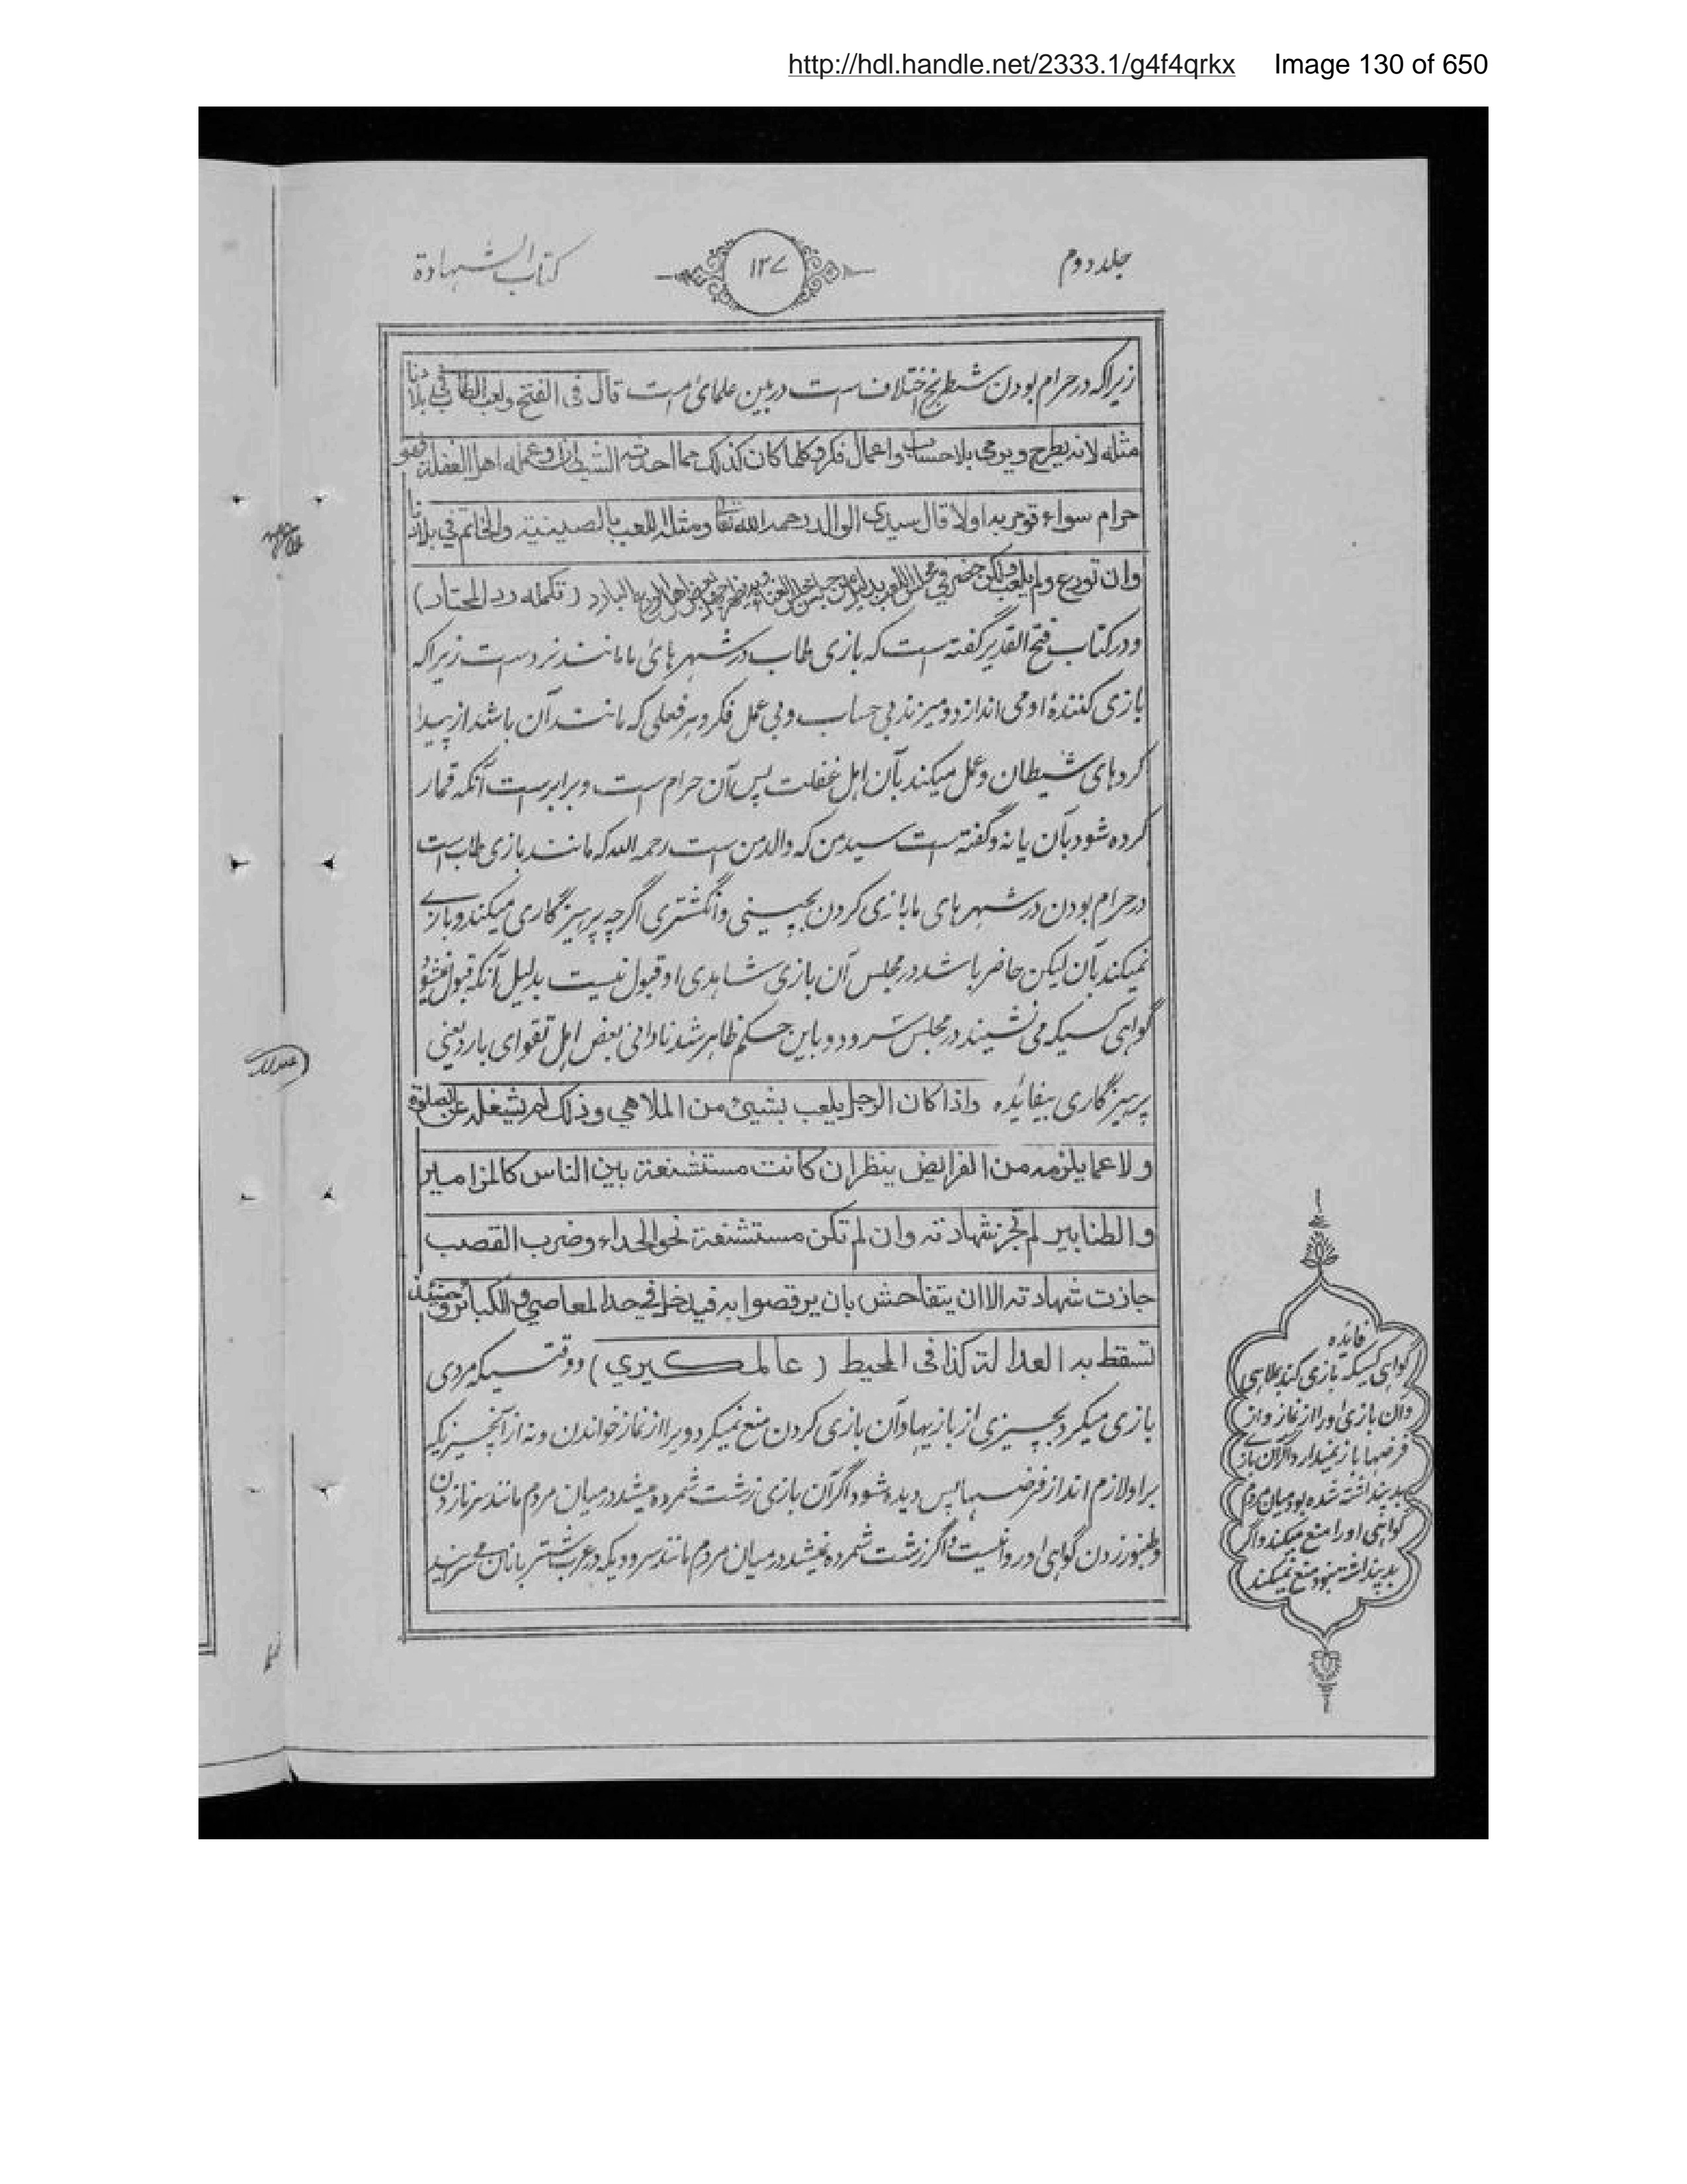 http://hdl.handle.net/2333.1/g4f4qrkx Image 130 of 650
جلد دوم
۱۲۷
کتاب الشهادة
زیراکه در حرام بودن شطرنج اختلاف است در بین علمائ امت قال فی الفتح ولعب الطاب فی بلادنا
مثله لانه یطرح ویرمی بلا حساب واعمال فکر وکلما کان کذلک مما احدثه الشیطان وعمله اهل الغفلة فهو
حرام سواء قومر به اولا قال سیدی الوالد رحمه الله تعالی ومثله اللعب بالصینیة والخاتم فی بلادنا
وان تورع ولم یلعب ولکن حضر فی مجلس اللعب بدلیل من جلس مجلس الغناء وبه یظهر جهل بعض اهل الورع البارد (تکمله رد المحتار)
ودر کتاب فتح القدیر گفته است که بازی طاب در شهر هائ ما مانند نرد است زیراکه
بازی کنندهٔ او می اندازد و میزند بی حساب و بی عمل فکر و هر فعلی که مانند آن باشد از پیدا
کردهای شیطان و عمل میکند بآن اهل غفلت پس آن حرام است و برابر است آنکه قمار
کرده شود بآن یا نه و گفته است سید من که والد من است رحمه الله که مانند بازی طاب است
در حرام بودن در شهر های ما بازی کردن بچینی و انگشتری اگرچه پرهیزگاری میکند و بازی
نمیکند بآن لیکن حاضر باشد در مجلس آن بازی شاهدی او قبول نیست بدلیل آنکه قبول نمیشود
گواهی کسیکه می نشیند در مجلس سرود و باین حکم ظاهر شد نادانی بعض اهل تقوای بارد یعنی
پرهیزگاری بیفائده واذا کان الرجل یلعب بشیئ من الملاهی وذلک لم یشغله عن الصلوة
ولا عما یلزمه من الفرایض ینظر ان کانت مستشنعة بین الناس کالمزامیر
والطنابیر لم تجز شهادته وان لم تکن مستشنعة نحو الحداء وضرب القصب
جازت شهادته الا ان یتفاحش بان یرقصوا به فیدخل فی حد المعاصی والکبائر وحینئذ
تسقط به العدالة کذا فی المحیط (عالمکیری) ووقتیکه مردی
بازی میکرد بچیزی از بازیها و آن بازی کردن منع نمیکرد ویرا از نماز خواندن و نه از آنچیزیکه
بر او لازم اند از فرضها پس دیده شود اگر آن بازی زشت شمرده میشد در میان مردم مانند سرناز زدن
و طنبور زدن گواهی او روا نیست و اگر زشت شمرده نمیشد در میان مردم مانند سرودیکه در عرب شتر بانان می سرایند
فائده
گواهی کسیکه بازی کند بملاهی
وان بازی اورا از نماز و از
فرضها باز نمیدارد اگر آن بازی
بد پنداشته شده بود میان مردم
گواهی اورا منع میکند و اگر
بد پنداشته نبود منع نمیکند